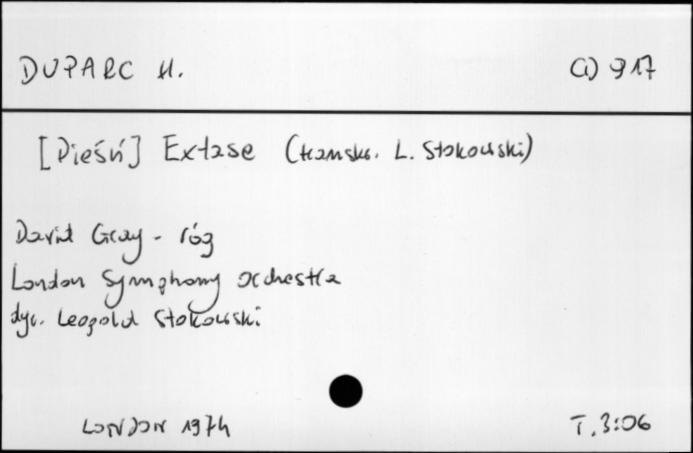 DUPARC H. CD 917
[Pieśń] Extase (transkr. L. Stokowski)
David Gray - róg
London Symphony Orchestra
dyr. Leopold Stokowski
LONDON 1974 T. 3:06